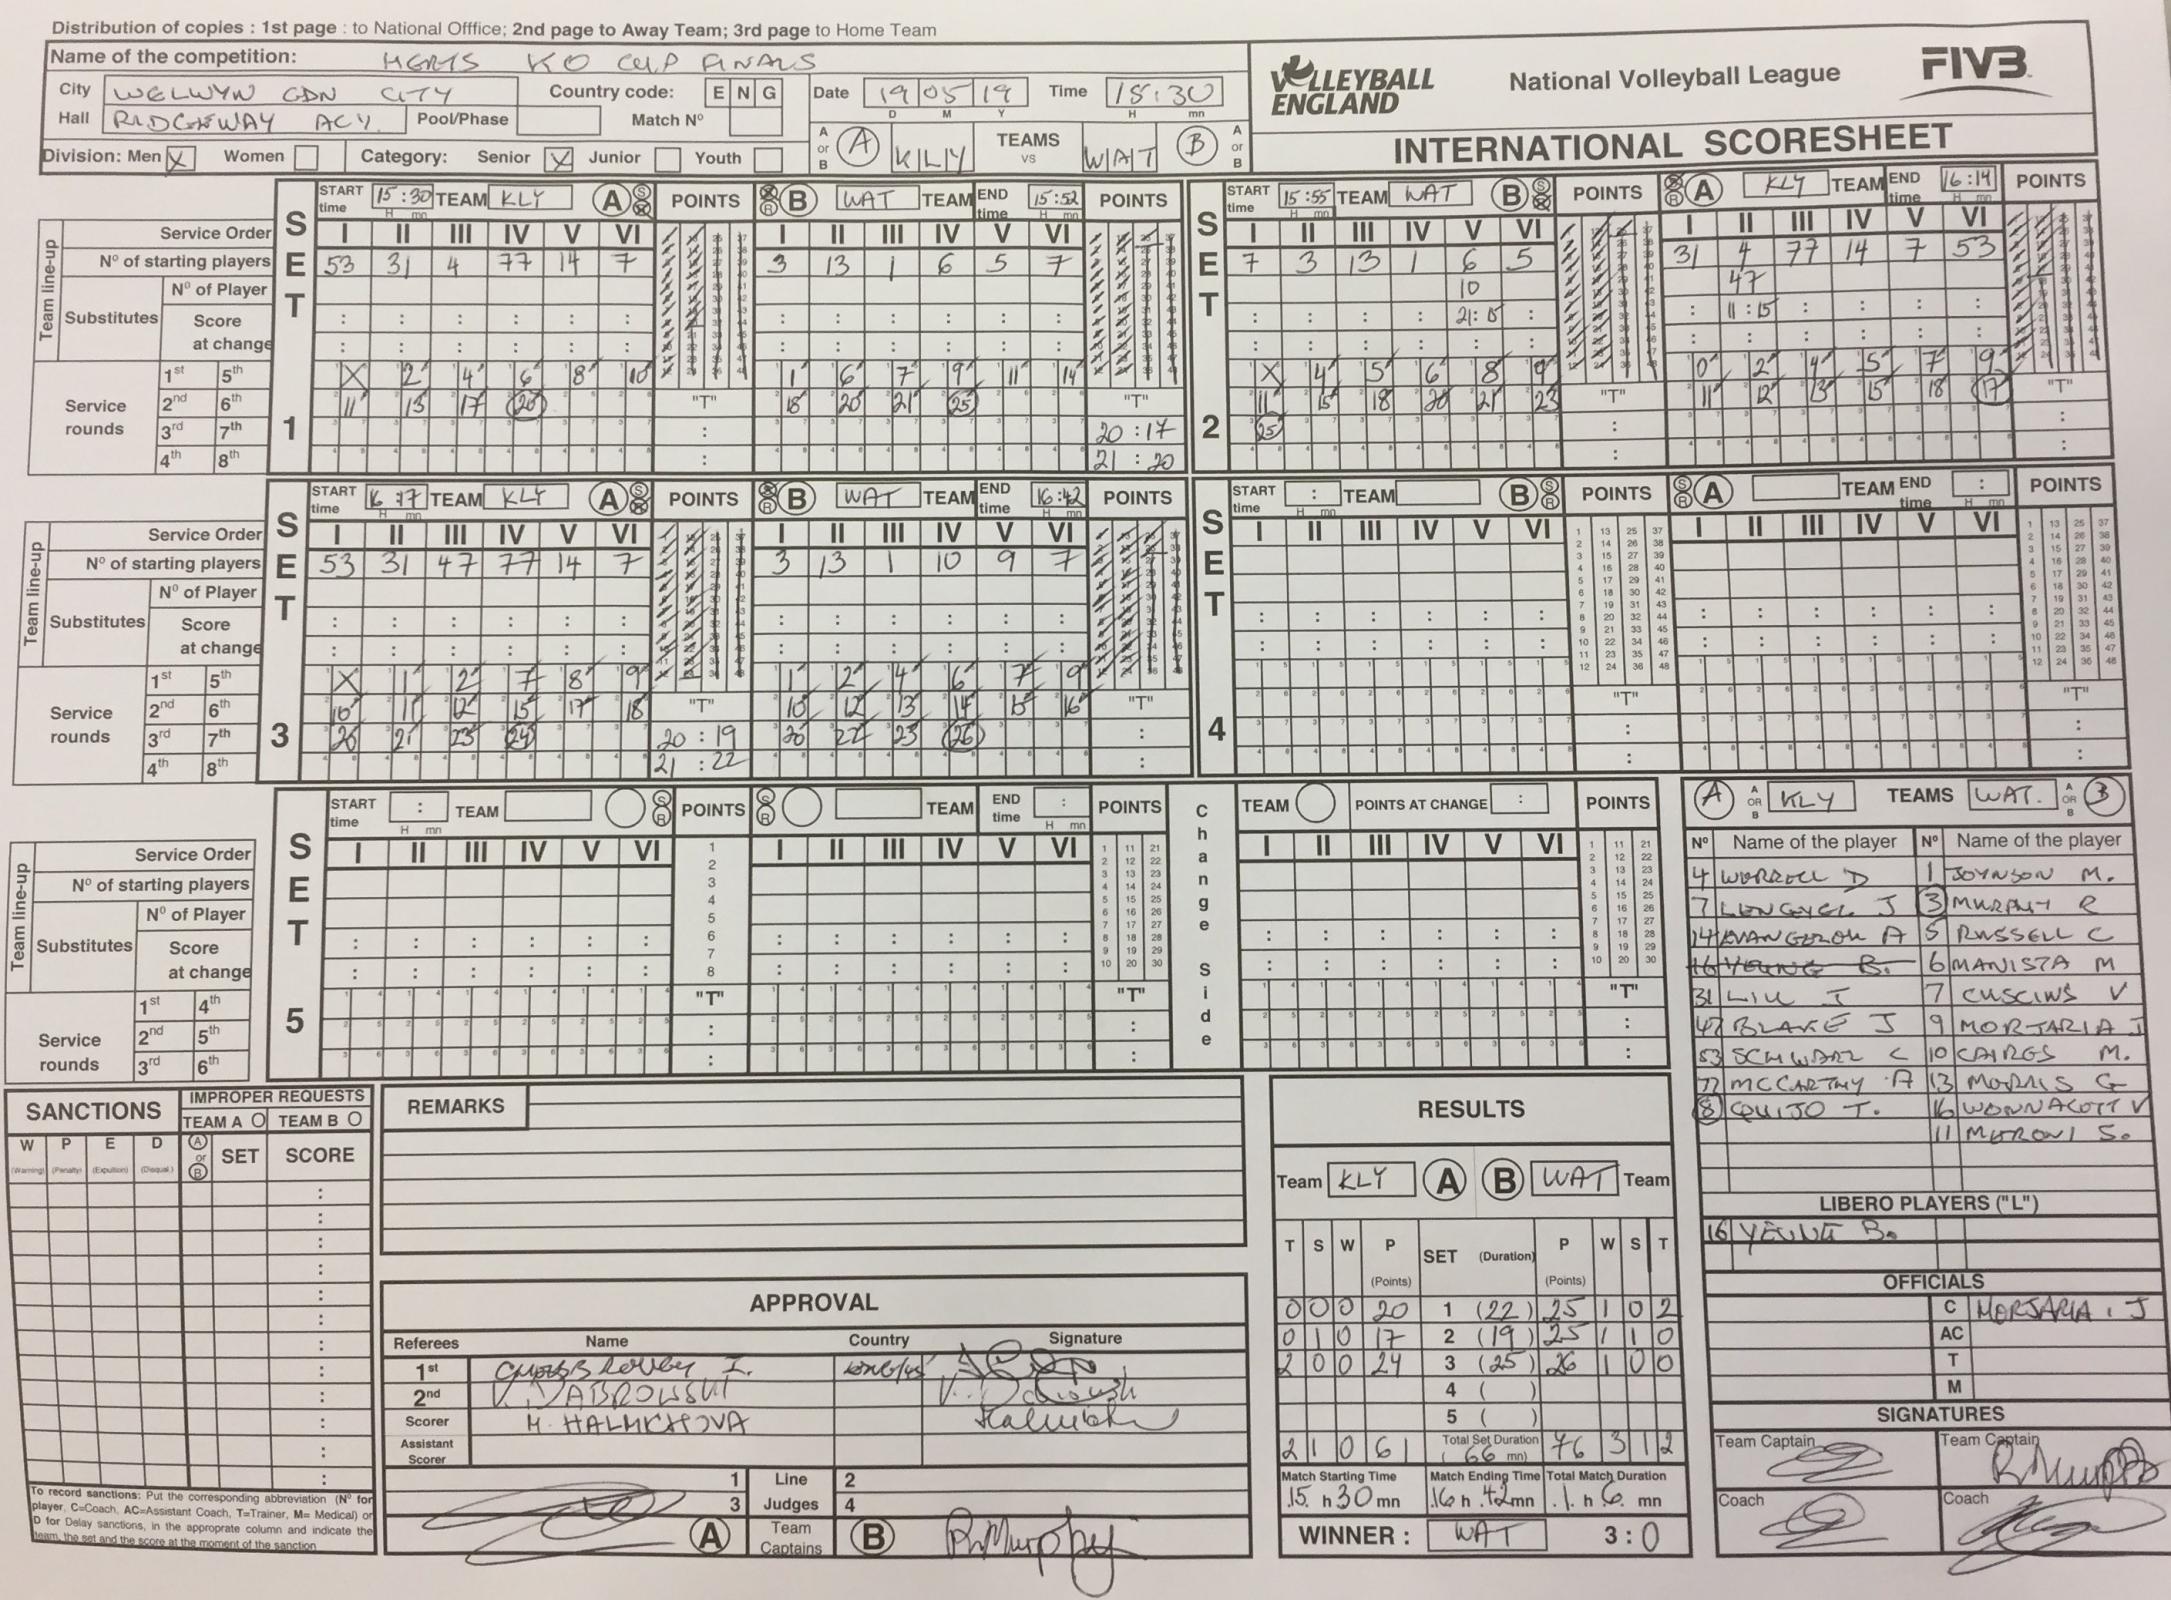 Distribution of copies : 1st page : to National Offfice; 2nd page to Away Team; 3rd page to Home Team
Name of the competition: HERTS KO CUP FINALS
City WELWYN GDN CITY Country code: E N G Date 19 05 19 Time 15:30
D M Y H mn
Hall RIDGEWAY ACY. Pool/Phase Match Nº
A or B A KLY TEAMS vs WAT B A or B
Division: Men X Women Category: Senior X Junior Youth
VOLLEYBALL ENGLAND National Volleyball League FIVB
INTERNATIONAL SCORESHEET
SET 1
START time 15:30 TEAM KLY A S R POINTS S R B WAT TEAM END time 15:52 POINTS
Service Order I II III IV V VI I II III IV V VI
Team line-up
Nº of starting players 53 31 4 77 14 7 3 13 1 6 5 7
Substitutes Nº of Player
Score at change
Service rounds
1st 5th X 2 4 6 8 10 1 6 7 9 11 14
2nd 6th 11 13 17 20 "T" 18 20 21 25 "T"
3rd 7th 20 : 17
4th 8th 21 : 20
SET 2
START time 15:55 TEAM WAT B S R POINTS S R A KLY TEAM END time 16:14 POINTS
I II III IV V VI I II III IV V VI
7 3 13 1 6 5 31 4 77 14 7 53
10 47
21:15 11:15
X 4 5 6 8 9 0 2 4 5 7 9
11 15 18 20 21 23 "T" 11 12 13 15 18 17 "T"
25
SET 3
START time 16:17 TEAM KLY A S R POINTS S R B WAT TEAM END time 16:42 POINTS
Service Order I II III IV V VI I II III IV V VI
Team line-up
Nº of starting players 53 31 47 77 14 7 3 13 1 10 9 7
Substitutes Nº of Player
Score at change
Service rounds
1st 5th X 1 2 7 8 9 1 2 4 6 7 9
2nd 6th 10 11 12 15 17 18 "T" 10 12 13 14 15 16 "T"
3rd 7th 20 21 23 24 20 : 19 20 22 23 26
4th 8th 21 : 22
SET 4
START time : TEAM B S R POINTS S R A TEAM END time : POINTS
I II III IV V VI I II III IV V VI
"T" "T"
SET 5
START time : TEAM S R POINTS S R TEAM END time : POINTS
Service Order I II III IV V VI I II III IV V VI
Team line-up
Nº of starting players
Substitutes Nº of Player
Score at change
Service rounds
1st 4th "T" "T"
2nd 5th
3rd 6th
Change Side
TEAM POINTS AT CHANGE : POINTS
I II III IV V VI
"T"
A A OR B KLY TEAMS WAT. A OR B B
Nº Name of the player Nº Name of the player
4 WORRELL D 1 JOYNSON M.
7 LENGYEL J 3 MURPHY R
14 EVANGELOU A 5 RUSSELL C
16 YEUNG B. 6 MANISTA M
31 LIU I 7 CUSCINS V
47 BLAKE J 9 MORJARIA J
53 SCHWARZ C 10 CAIRES M.
77 MCCARTHY A 13 MORRIS G
8 QUIJO T. 16 WONNACOTT V
11 MERONI S.
LIBERO PLAYERS ("L")
16 YEUNG B.
OFFICIALS
C MORJARIA . J
AC
T
M
SIGNATURES
Team Captain Team Captain R Murphy
Coach Coach
SANCTIONS IMPROPER REQUESTS
TEAM A O TEAM B O
W P E D A or B SET SCORE
(Warning) (Penalty) (Expultion) (Disqual.)
To record sanctions: Put the corresponding abbreviation (Nº for
player, C=Coach, AC=Assistant Coach, T=Trainer, M= Medical) or
D for Delay sanctions, in the approprate column and indicate the
team, the set and the score at the moment of the sanction
REMARKS
APPROVAL
Referees Name Country Signature
1st
2nd V. DABROWSKI
Scorer H. HALMICHOVA
Assistant Scorer
1 Line 2
3 Judges 4
A Team Captains B R Murphy
RESULTS
Team KLY A B WAT Team
T S W P (Points) SET (Duration) P (Points) W S T
0 0 0 20 1 (22) 25 1 0 2
0 1 0 17 2 (19) 25 1 1 0
2 0 0 24 3 (25) 26 1 0 0
4 ( )
5 ( )
2 1 0 61 Total Set Duration (66 mn) 76 3 1 2
Match Starting Time Match Ending Time Total Match Duration
15 h 30 mn 16 h 42 mn 1 h 6 mn
WINNER : WAT 3 : 0